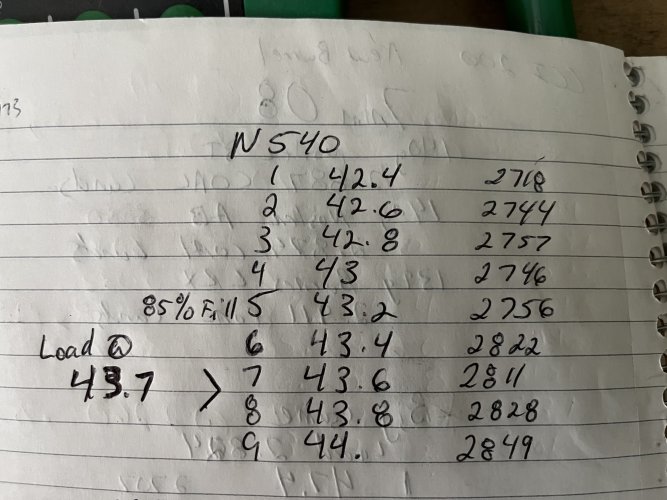 N540
1 42.4 2718
2 42.6 2744
3 42.8 2757
4 43 2746
85% Fill 5 43.2 2756
Load @ 6 43.4 2822
43.7 > 7 43.6 2811
8 43.8 2828
9 44. 2849